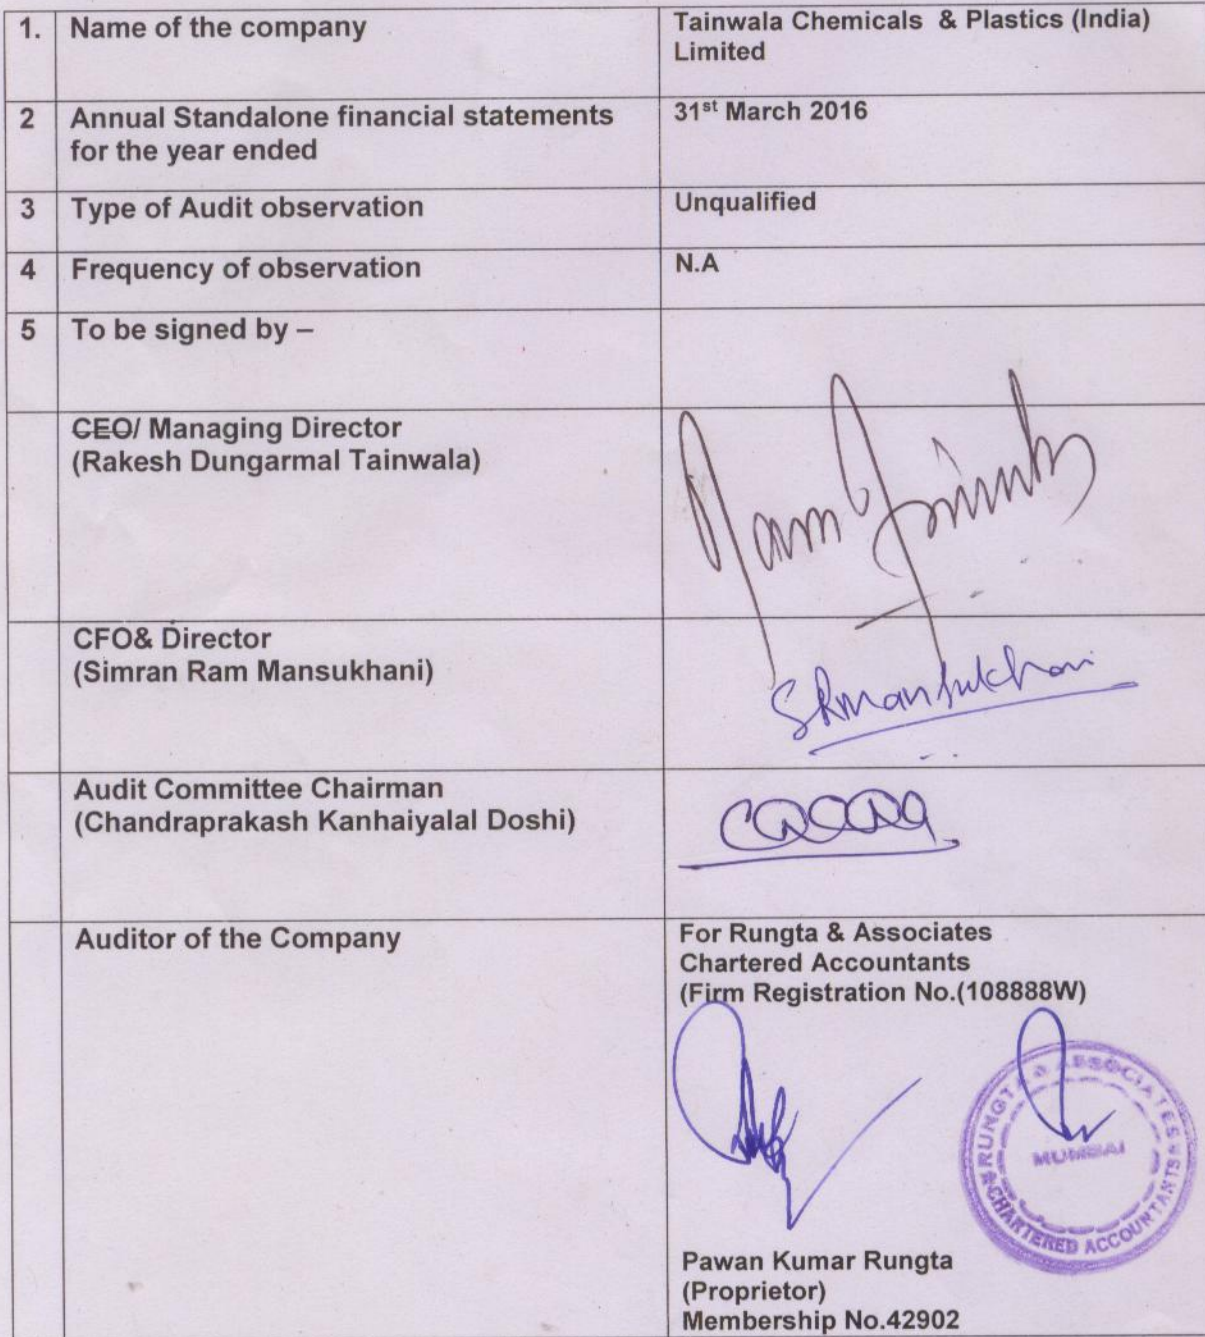 1. Name of the company
Tainwala Chemicals & Plastics (India)
Limited
2 Annual Standalone financial statements
for the year ended
31st March 2016
3 Type of Audit observation
Unqualified
4 Frequency of observation
N.A
5 To be signed by –
CEO/ Managing Director
(Rakesh Dungarmal Tainwala)
CFO& Director
(Simran Ram Mansukhani)
SRmansukhani
Audit Committee Chairman
(Chandraprakash Kanhaiyalal Doshi)
Auditor of the Company
For Rungta & Associates
Chartered Accountants
(Firm Registration No.(108888W)
RUNGTA & ASSOCIATES
MUMBAI
CHARTERED ACCOUNTANTS
Pawan Kumar Rungta
(Proprietor)
Membership No.42902